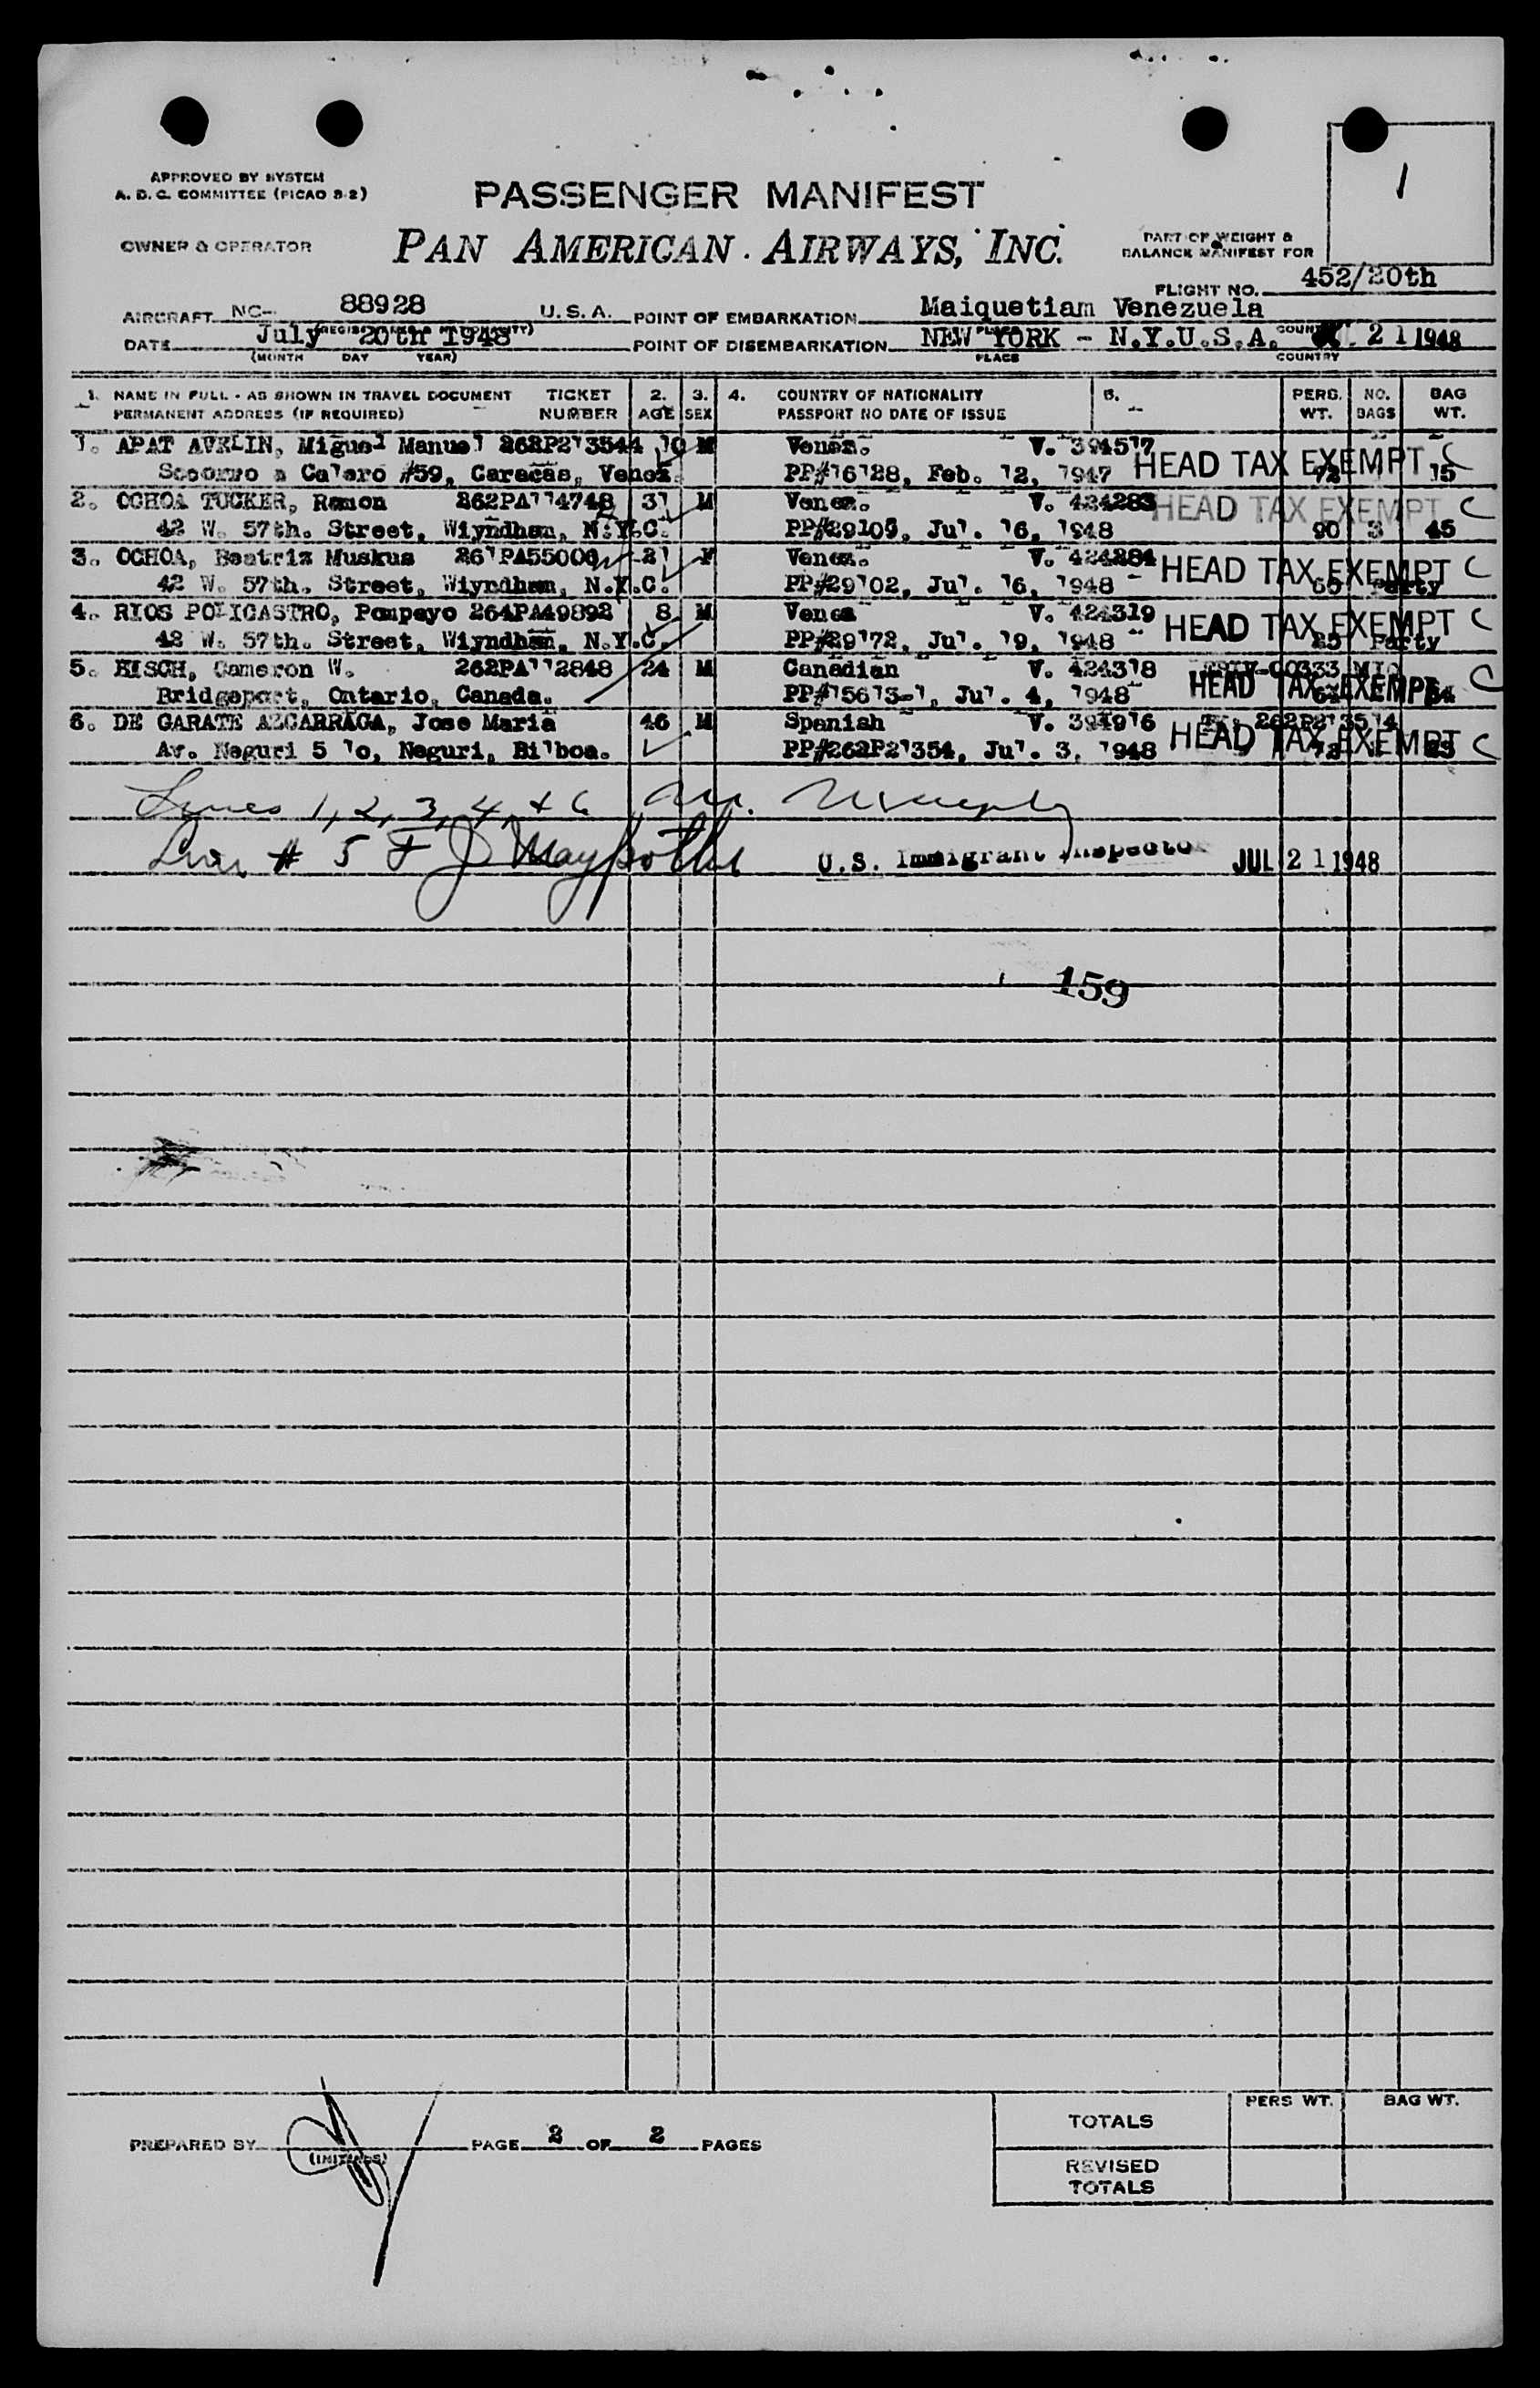 1
APPROVED BY SYSTEM
A. D. C. COMMITTEE (PICAO 8-2)
PASSENGER MANIFEST
OWNER & OPERATOR
PAN AMERICAN AIRWAYS, INC.
PART OF WEIGHT &
BALANCE MANIFEST FOR
FLIGHT NO. 452/20th
AIRCRAFT NC- 88928 U.S.A. POINT OF EMBARKATION Maiquetiam Venezuela
DATE July 20th 1948 POINT OF DISEMBARKATION NEW YORK - N.Y.U.S.A. 21 1948
(MONTH DAY YEAR) PLACE COUNTRY
1. NAME IN FULL - AS SHOWN IN TRAVEL DOCUMENT TICKET 2. 3. 4. COUNTRY OF NATIONALITY 5. PERS. NO. BAG
PERMANENT ADDRESS (IF REQUIRED) NUMBER AGE SEX PASSPORT NO DATE OF ISSUE WT. BAGS WT.
1. APAT AVELIN, Miguel Manuel 262P213544 10 M Venez. V. 394517
#59, Caracas, Venez. PP#16128, Feb. 12, 1947 HEAD TAX EXEMPT 72 1 15 C
2. OCHOA TUCKER, Ramon 262PA114748 31 M Venez. V. 424283 HEAD TAX EXEMPT C
42 W. 57th. Street, Wiyndham, N.Y.C. PP#29109, Jul. 16, 1948 90 3 45
3. OCHOA, Beatriz Muskus 261PA55006 21 F Venez. V. 424284
42 W. 57th. Street, Wiyndham, N.Y.C. PP#29102, Jul. 16, 1948 HEAD TAX EXEMPT Party C
4. RIOS POLICASTRO, Pompeyo 264PA49892 8 M Venez V. 424319
42 W. 57th. Street, Wiyndham, N.Y.C. PP#29172, Jul. 19, 1948 HEAD TAX EXEMPT 25 Party C
5. Cameron W. 262PA112848 24 M Canadian V. 424318
Bridgeport, Ontario, Canada. PP#15613-1, Jul. 4, 1948 HEAD TAX EXEMPT C
6. DE GARATE AZCARRAGA, Jose Maria 46 M Spanish V. 394916 262P213514
Av. Neguri 5 10, Neguri, Bilboa. PP#262P21354, Jul. 3, 1948 HEAD TAX EXEMPT C
Lines 1, 2, 3, 4, + 6
Line # 5 U.S. Immigrant Inspector JUL 21 1948
159
PREPARED BY (INITIALS) PAGE 2 OF 2 PAGES
PERS WT. BAG WT.
TOTALS
REVISED
TOTALS